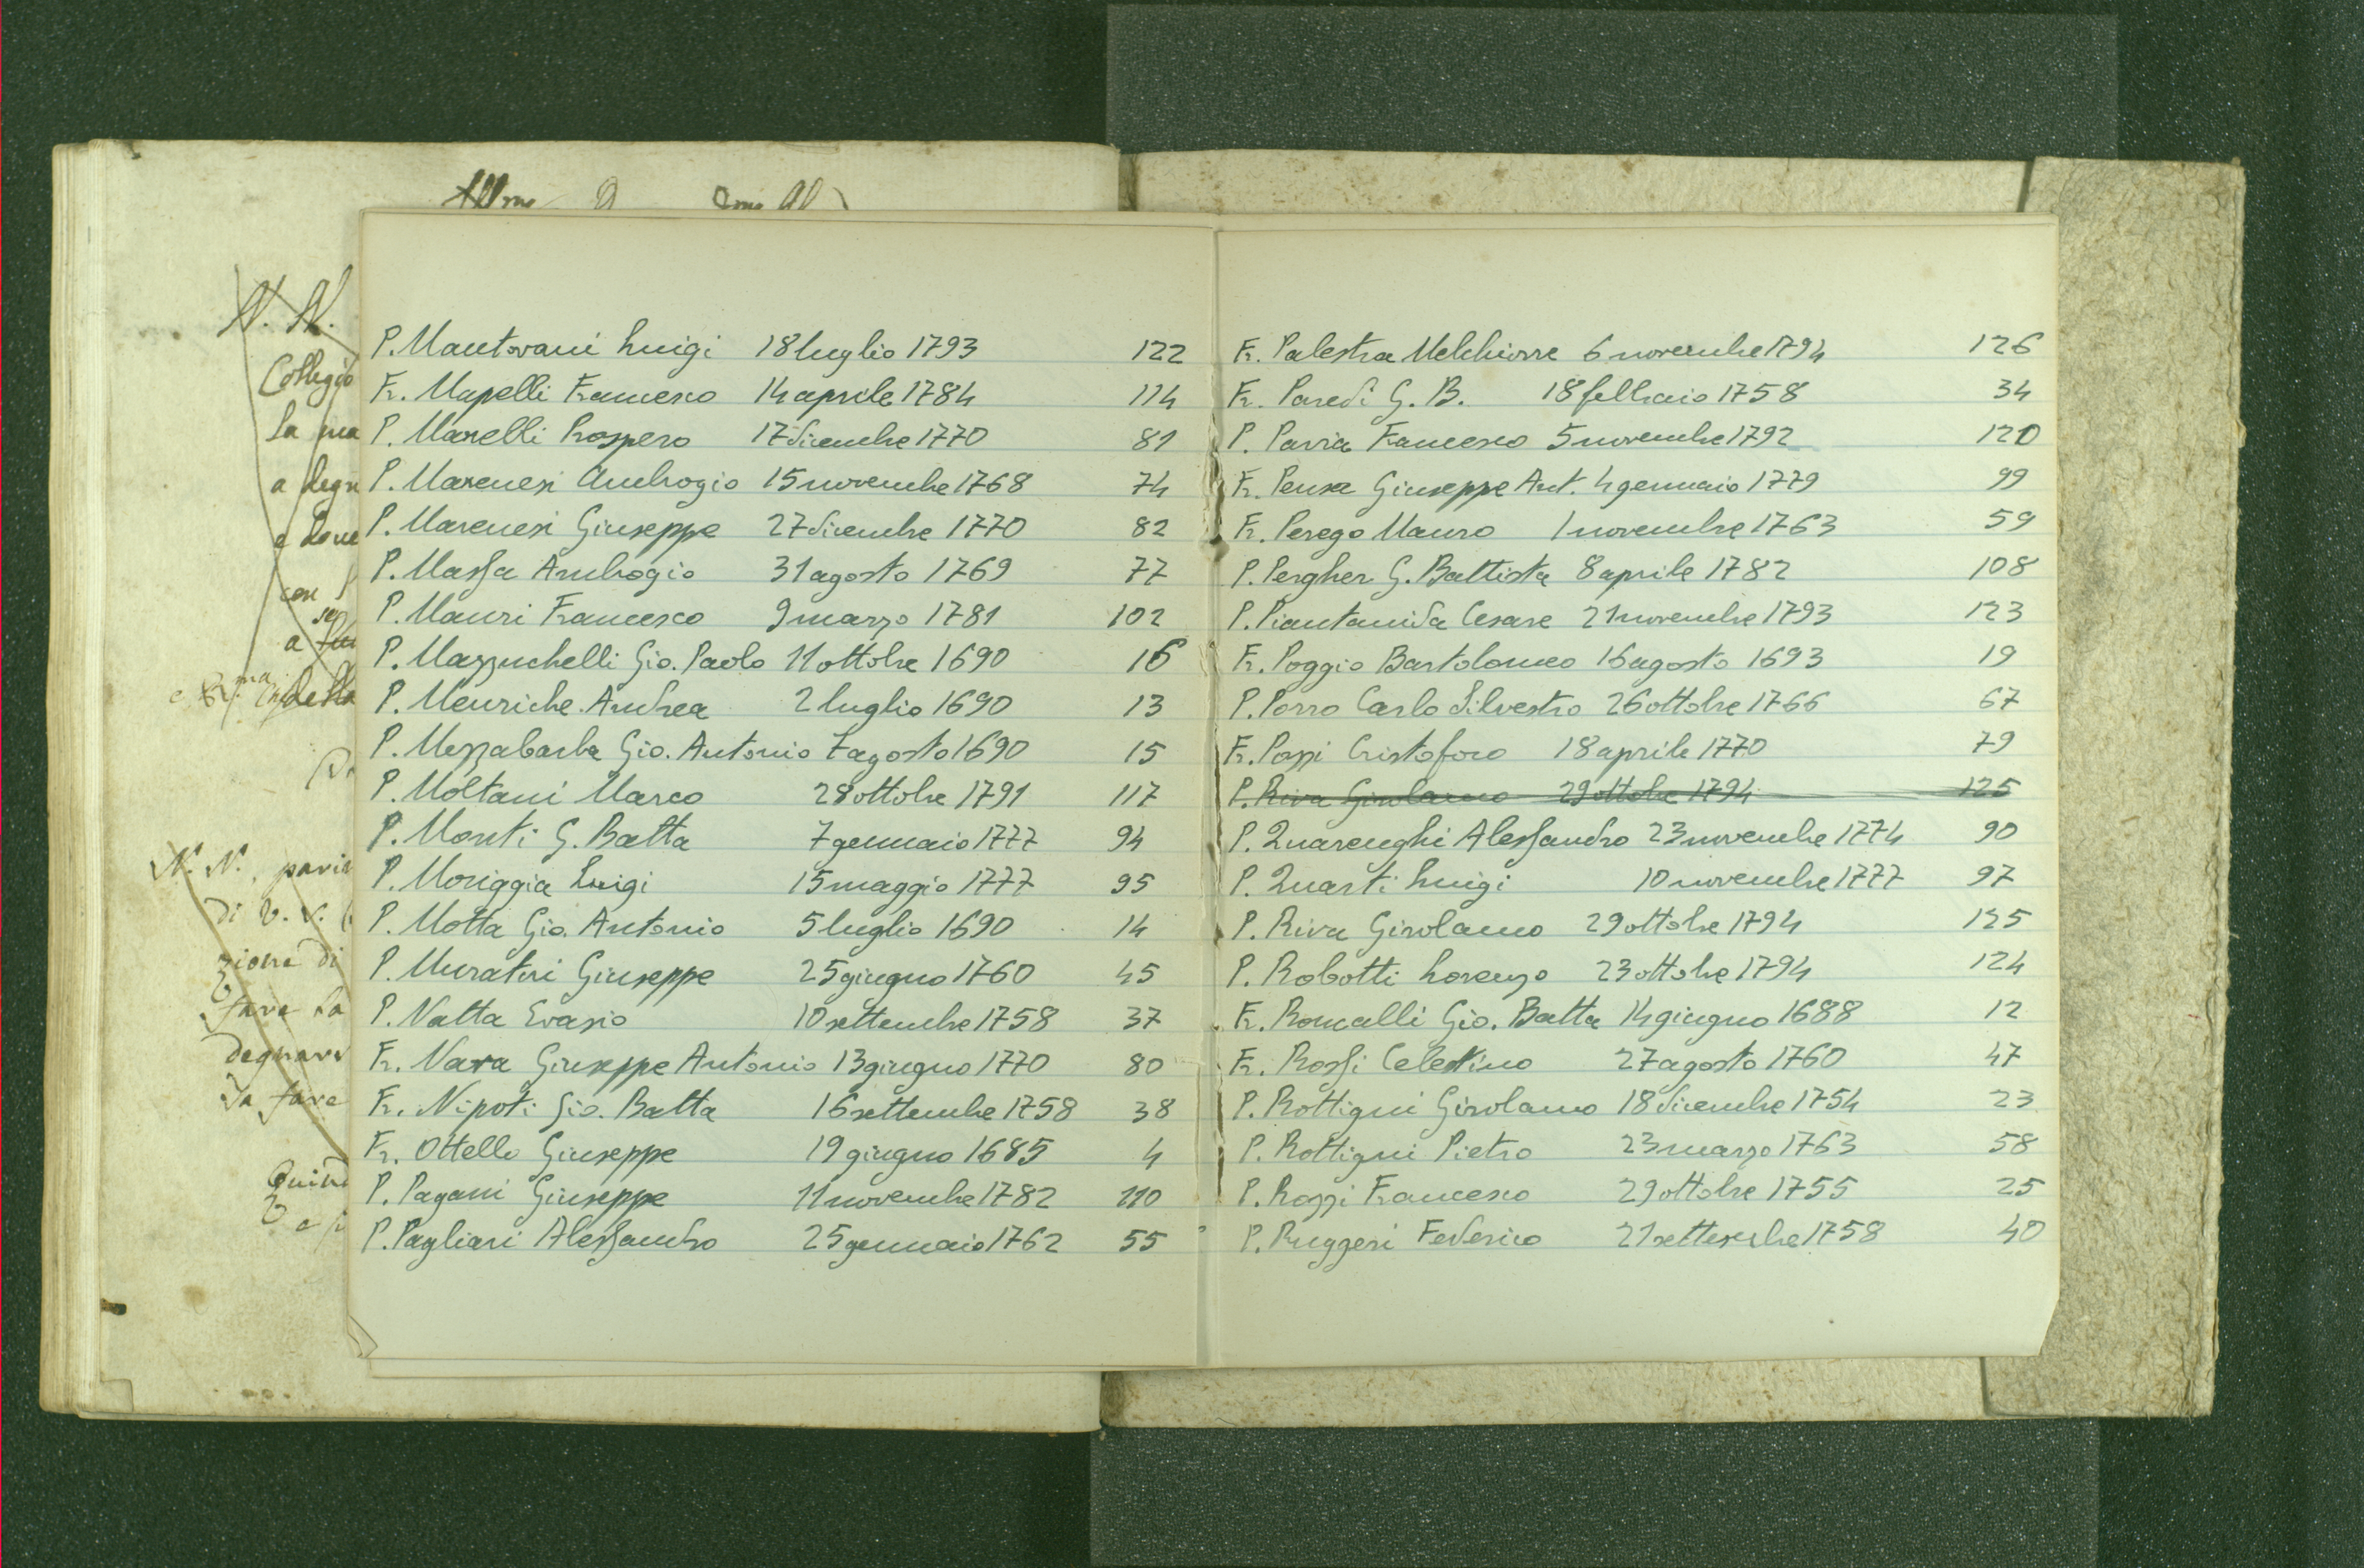 N. N.
Collegio
la ma
a degn
e dove
con
a
della
N. N., pavia
di V. S.
zione di
fare la
degnarsi
da fare
Quind
P. Mantovani Luigi 18 luglio 1793 122
Fr. Mapelli Francesco 14 aprile 1784 114
P. Marelli Prospero 17 dicembre 1770 81
P. Marenesi Ambrogio 15 novembre 1768 74
P. Marenesi Giuseppe 27 dicembre 1770 82
P. Massa Ambrogio 31 agosto 1769 77
P. Mauri Francesco 9 marzo 1781 102
P. Mazzuchelli Gio. Paolo 11 ottobre 1690 16
P. Menriche Andrea 2 luglio 1690 13
P. Mezzabarba Gio. Antonio 7 agosto 1690 15
P. Moltani Marco 28 ottobre 1791 117
P. Monti G. Batta 7 gennaio 1777 94
P. Moriggia Luigi 15 maggio 1777 95
P. Motta Gio. Antonio 5 luglio 1690 14
P. Muratori Giuseppe 25 giugno 1760 45
P. Natta Evasio 10 settembre 1758 37
Fr. Nava Giuseppe Antonio 13 giugno 1770 80
Fr. Nipoti Gio. Batta 16 settembre 1758 38
Fr. Ottello Giuseppe 19 giugno 1685 4
P. Pagani Giuseppe 11 novembre 1782 110
P. Pagliari Alessandro 25 gennaio 1762 55
Fr. Palestra Melchiorre 6 novembre 1794 126
Fr. Paredi G. B. 18 febbraio 1758 34
P. Pavia Francesco 5 novembre 1792 120
Fr. Pensa Giuseppe Ant. 4 gennaio 1779 99
Fr. Perego Mauro 1 novembre 1763 59
P. Pergher G. Battista 8 aprile 1782 108
P. Piantanida Cesare 21 novembre 1793 123
Fr. Poggio Bartolomeo 16 agosto 1693 19
P. Porro Carlo Silvestro 26 ottobre 1766 67
Fr. Pozzi Cristoforo 18 aprile 1770 79
P. Riva Girolamo 29 ottobre 1794 125
P. Quarenghi Alessandro 23 novembre 1774 90
P. Quarti Luigi 10 novembre 1777 97
P. Riva Girolamo 29 ottobre 1794 125
P. Robotti Lorenzo 23 ottobre 1794 124
Fr. Roncalli Gio. Batta 14 giugno 1688 12
Fr. Rossi Celestino 27 agosto 1760 47
P. Rottigni Girolamo 18 dicembre 1754 23
P. Rottigni Pietro 23 marzo 1763 58
P. Rozzi Francesco 29 ottobre 1755 25
P. Ruggeri Federico 21 settembre 1758 40